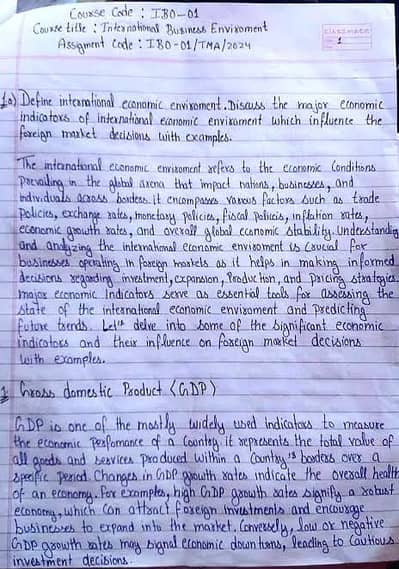 Course Code : IBO-01
Course title : International Business Enviroment
Assigment Code : IBO-01/TMA/2024
classmate
1
1a) Define international economic enviroment. Discuss the major economic
indicators of international economic enviroment which influence the
foreign market decisions with examples.
The international economic enviroment refers to the economic Conditions
Prevailing in the global arena that impact nations, businesses, and
individuals across borders. it encompasses various factors such as trade
Policies, exchange rates, monetary policies, fiscal policies, inflation rates,
economic growth rates, and overall global economic stability. Understanding
and analyzing the international economic enviroment is crucial for
businesses operating in foreign markets as it helps in making informed
decisions regarding investment, expansion, Production, and pricing strategies.
major economic Indicators serve as essential tools for assessing the
state of the international economic enviroment and Predicting
future trends. Let's delve into some of the significant economic
indicators and their influence on foreign market decisions
with examples.
1 Gross domestic Product (GDP)
GDP is one of the mostly widely used indicators to measure
the economic Perfomance of a Country. it represents the total value of
all goods and services produced within a Country's borders over a
specific Period. Changes in GDP growth rates indicate the overall health
of an economy. For examples, high GDP growth rates signify a robust
economy, which can attract foreign investments and encourage
businesses to expand into the market. Conversely, low or negative
GDP growth rates may signal economic downturns, leading to Cautious
investment decisions.